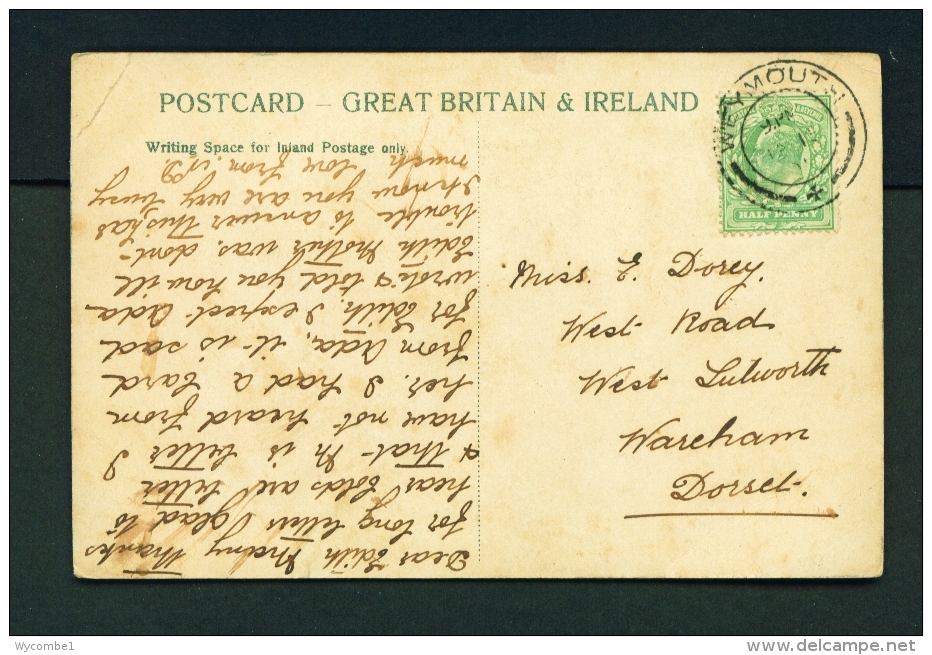 POSTCARD – GREAT BRITAIN & IRELAND
Writing Space for Inland Postage only.
WEYMOUTH
HALF PENNY
Miss. E. Dorey.
West Road
West Lulworth
Wareham
Dorset.
Dear Edith Many Thanks
for long letter glad to
hear Colds are better
& that M is better I
have not heard from
her. I had a Card
from Ada, it is sad
for Edith, I expect Ada
wrote & told you how ill
Edith Mother was. dont
trouble to answer this as
I know you are very busy
much love from
Wycombe1
www.delcampe.net